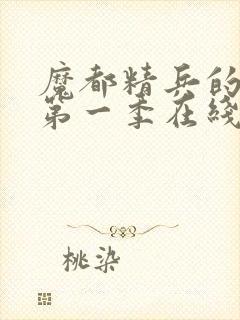 魔都精兵的
第一季在线
桃染